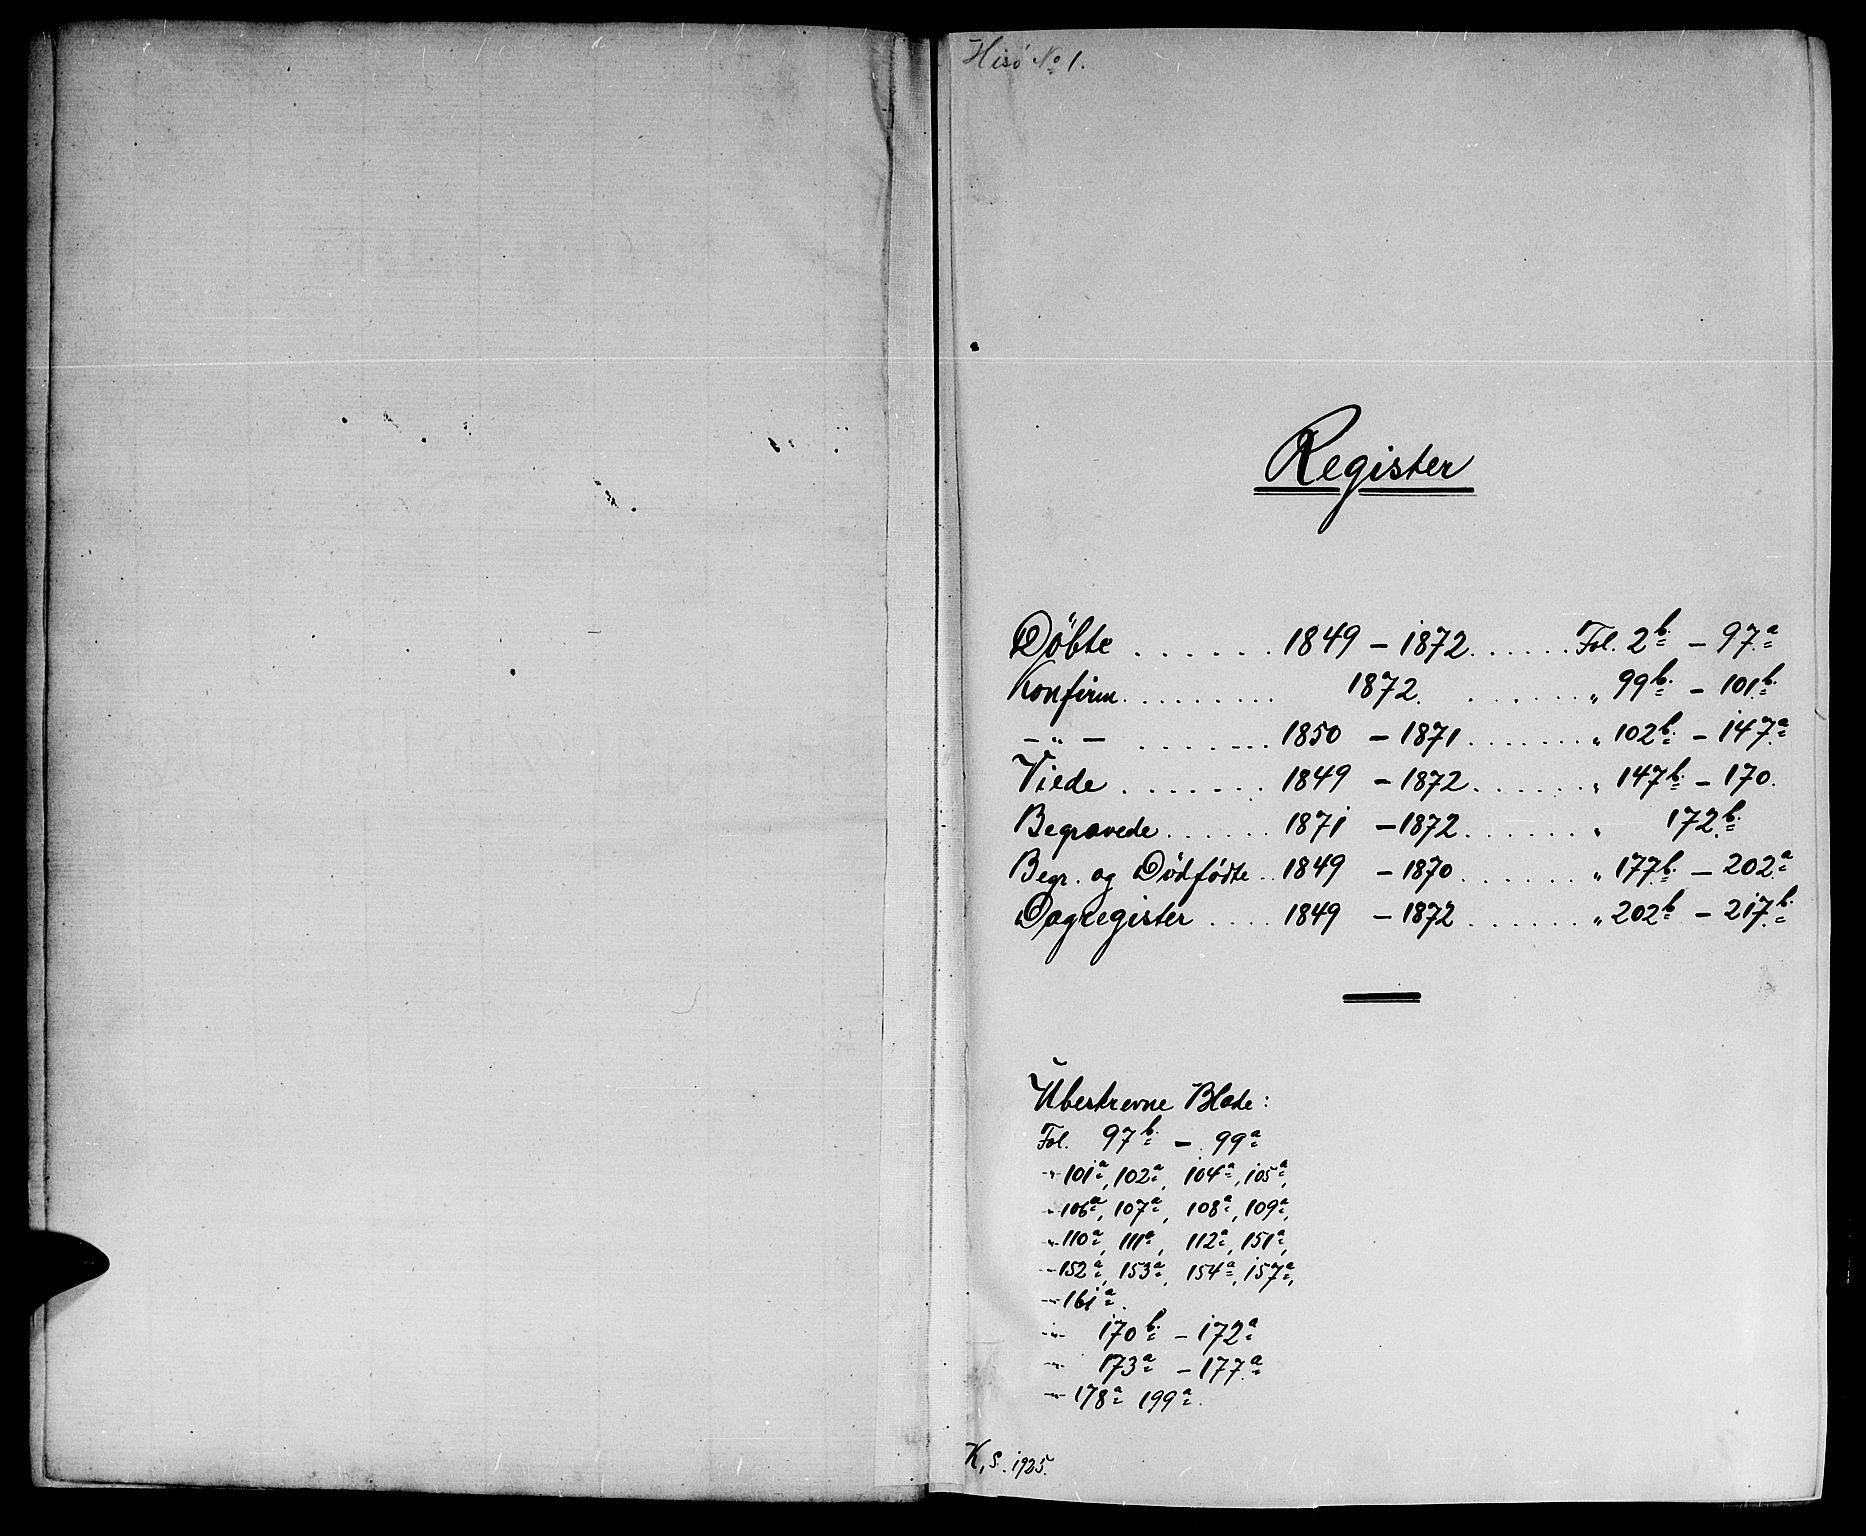 Hisö No 1.
Register
Döbte . . . . . . 1849 - 1872 . . . . . . Fol. 2b. - 97a
Konfirm. . . . . . . . . 1872. . . . . . " 99b. - 101b.
- " - . . . . . . . . 1850 - 1871 . . . . . . . " 102b. - 147a
Viede . . . . . . . 1849 - 1872 . . . . . . " 147b. - 170.
Begravede . . . . . . 1871 - 1872 . . . . . . . " 172b.
Begr. og Dödfödte . . 1849 - 1870 . . . . . . . " 177b. - 202a
Dagregister . . . . 1849 - 1872 . . . . . . " 202b - 217b.
Ubeskrevne Blade:
Fol. 97b. - 99a
-"- 101a, 102a, 104a, 105a,
-"- 106a, 107a, 108a, 109a,
-"- 110a, 111a, 112a, 151a,
-"- 152a, 153a, 154a, 157a,
-"- 161a.
-"- 170b. - 172a
-"- 173a - 177a
-"- 178a 199a.
K. S. 1925.